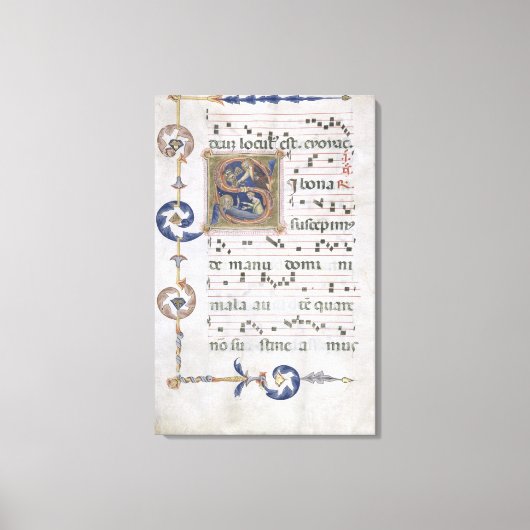 deus locut' est. evovae.
Si bona R
suscepimus
de manu domini
mala aut ē quare
nō sustineamus